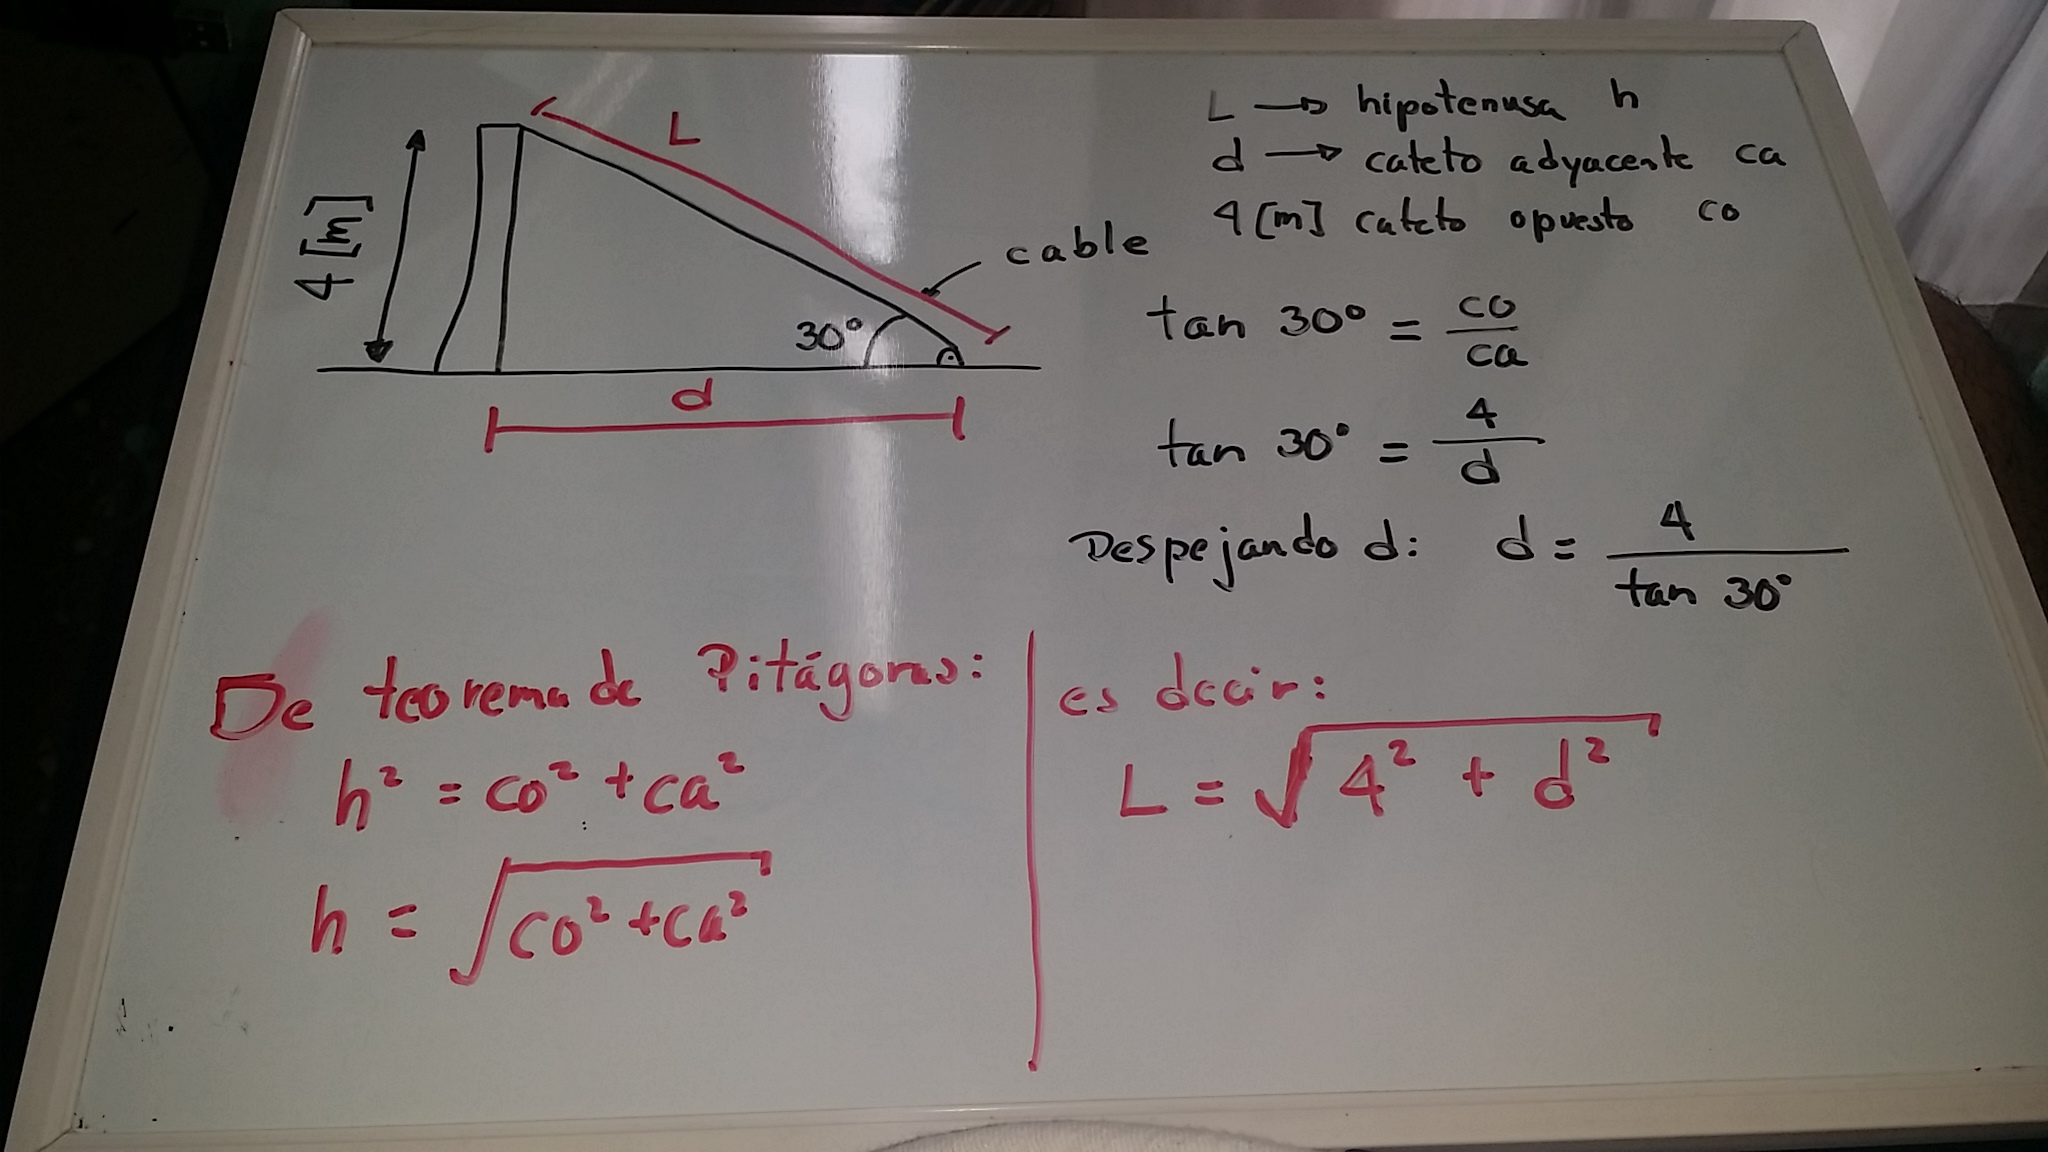 L
4 [m]
cable
30°
d
L → hipotenusa h
d → cateto adyacente ca
4 [m] cateto opuesto co
tan 30° = co/ca
tan 30° = 4/d
Despejando d: d = 4/tan 30°
De teorema de Pitágoras:
h² = co² + ca²
h = √(co² + ca²)
es decir:
L = √(4² + d²)